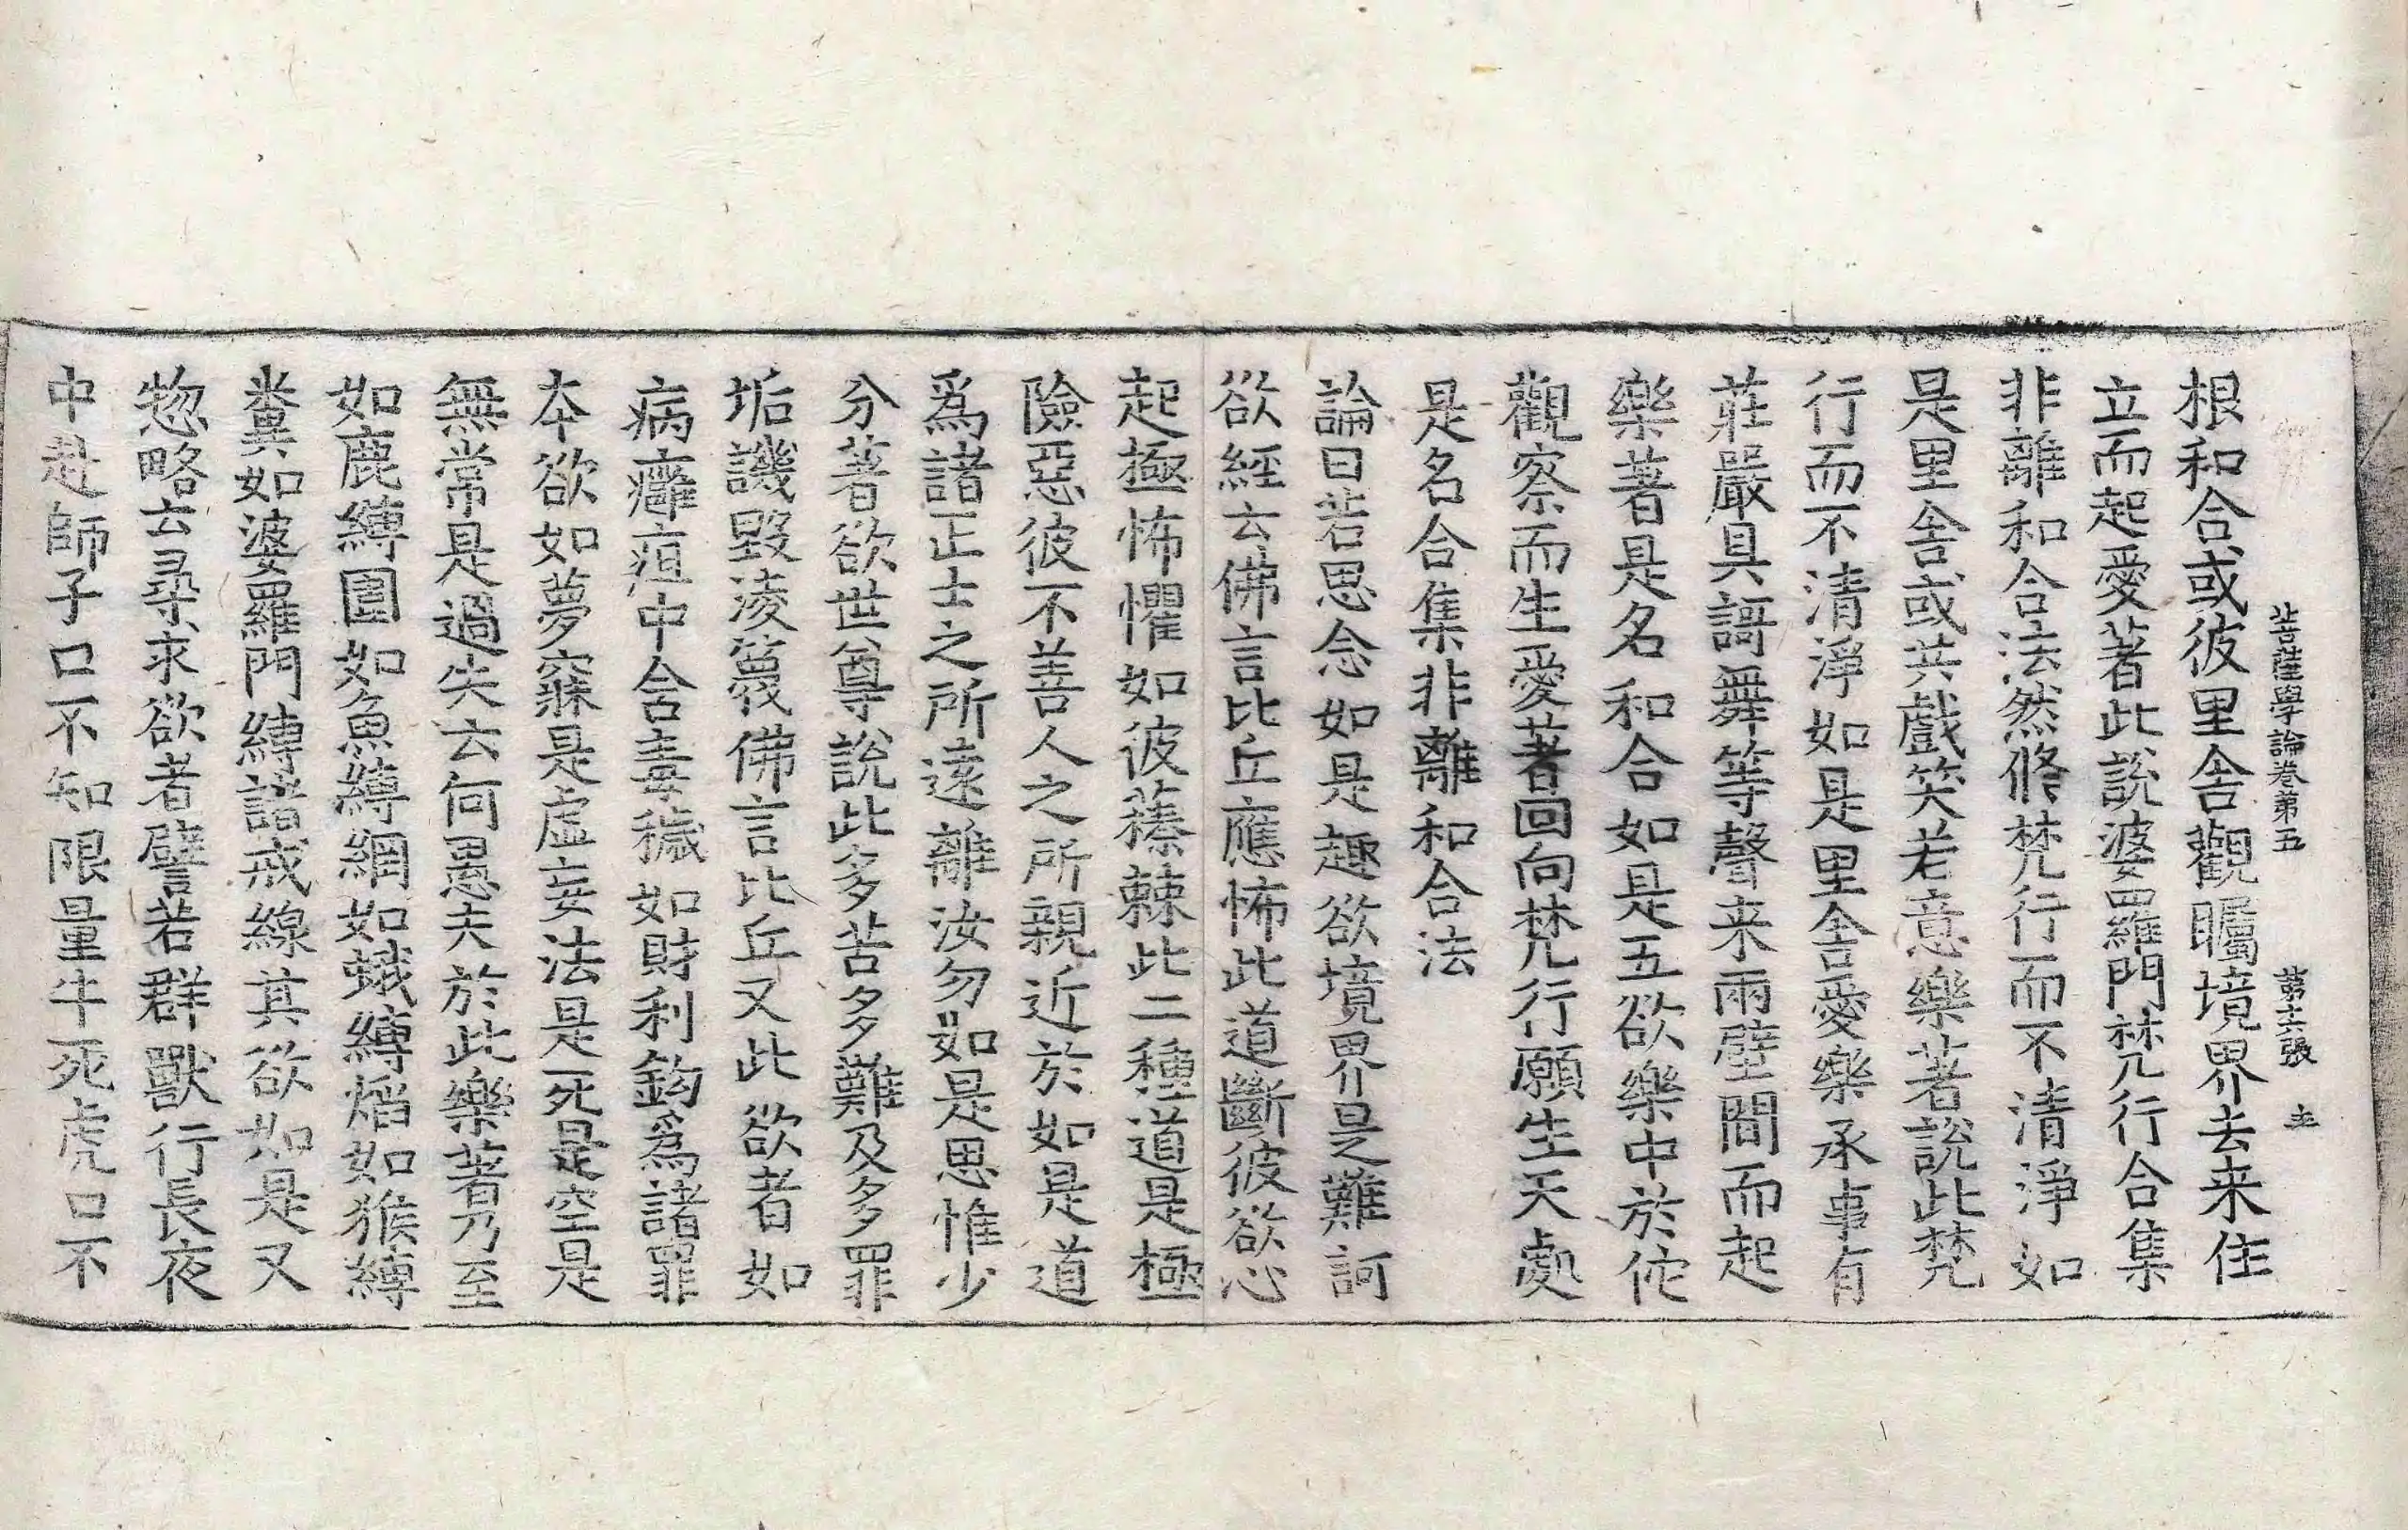 菩薩學論卷第五　第十六張　士
根和合或彼里舍觀矚境界去来住
立而起愛著此說婆羅門梵行合集
非離和合法然脩梵行而不清淨如
是里舍或共戲笑若意樂著說此梵
行而不清淨如是里舍愛樂承事有
莊嚴具謌舞等聲来兩壁間而起
樂著是名和合如是五欲樂中於佗
觀察而生愛著回向梵行願生天處
是名合集非離和合法
論曰若思念如是趣欲境界是難訶
欲經云佛言比丘應怖此道斷彼欲心
起極怖懼如彼蓁棘此二種道是極
險惡彼不善人之所親近於如是道
爲諸正士之所遠離汝勿如是思惟少
分著欲世尊說此多苦多難及多罪
垢譏毀淩篾佛言比丘又此欲者如
病癰疽中含毒穢如財利鈎爲諸罪
本欲如夢寐是虛妄法是死是空是
無常是過失云何愚夫於此樂著乃至
如鹿縛圍如魚縛網如蛾縛熖如猴縛
糞如婆羅門縛諸戒線其欲如是又
惣略云尋求欲者譬若群獸行長夜
中赴師子口不知限量牛死虎口不